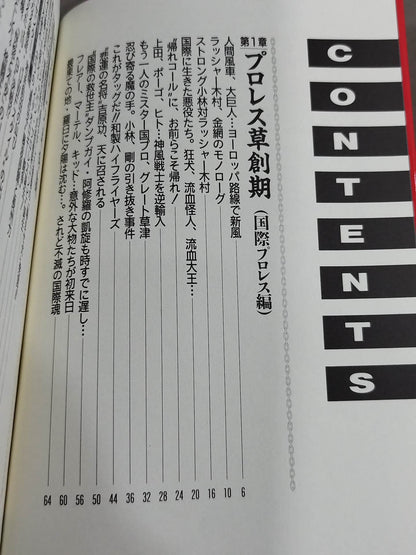 CONTENTS
第1章 プロレス草創期（国際プロレス編）
人間風車、大巨人…ヨーロッパ路線で新風 6
ラッシャー木村、金網のモノローグ 10
ストロング小林対ラッシャー木村 16
国際に生きた悪役たち。狂犬、流血怪人、流血大王… 20
〝帰れコール〟に、お前らこそ帰れ! 24
上田、ボーゴ、ヒト…神風戦士を逆輸入 28
もう一人のミスター国プロ、グレート草津 32
忍び寄る魔の手。小林、剛の引き抜き事件 36
これがタッグだ!!和製ハイフライヤーズ 44
〝悲運の名将〟吉原功、天に召される 50
〝国際の救世主〟ダンプガイ・阿修羅の凱旋も時すでに遅し… 56
フレアー、マーテル、キッド…意外な大物たちが初来日 60
最果ての地・羅臼に夕陽は沈む…。されど不滅の国際魂 64